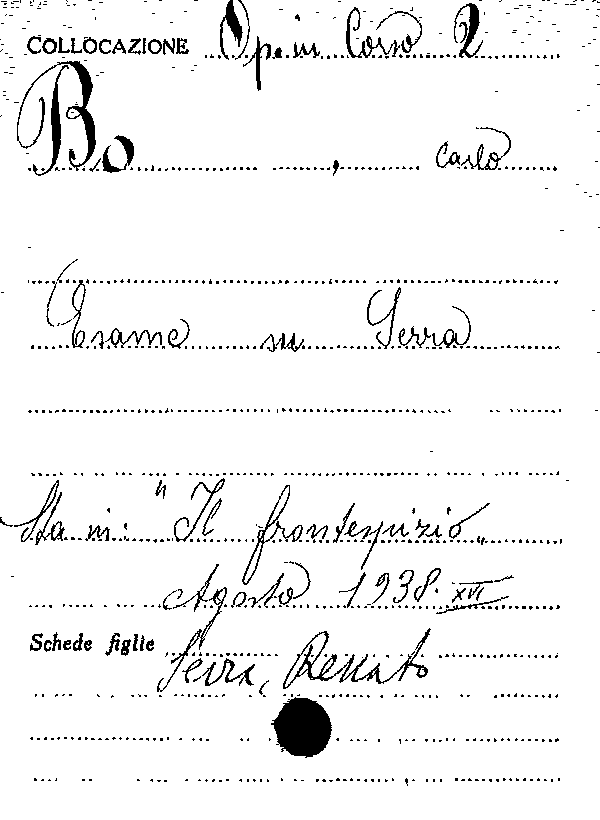 COLLOCAZIONE Op. in Corso 2
Bo, Carlo
Esame su Serra
Sta in: "Il frontespizio„
Agosto 1938. XVI
Schede figlie Serra, Renato